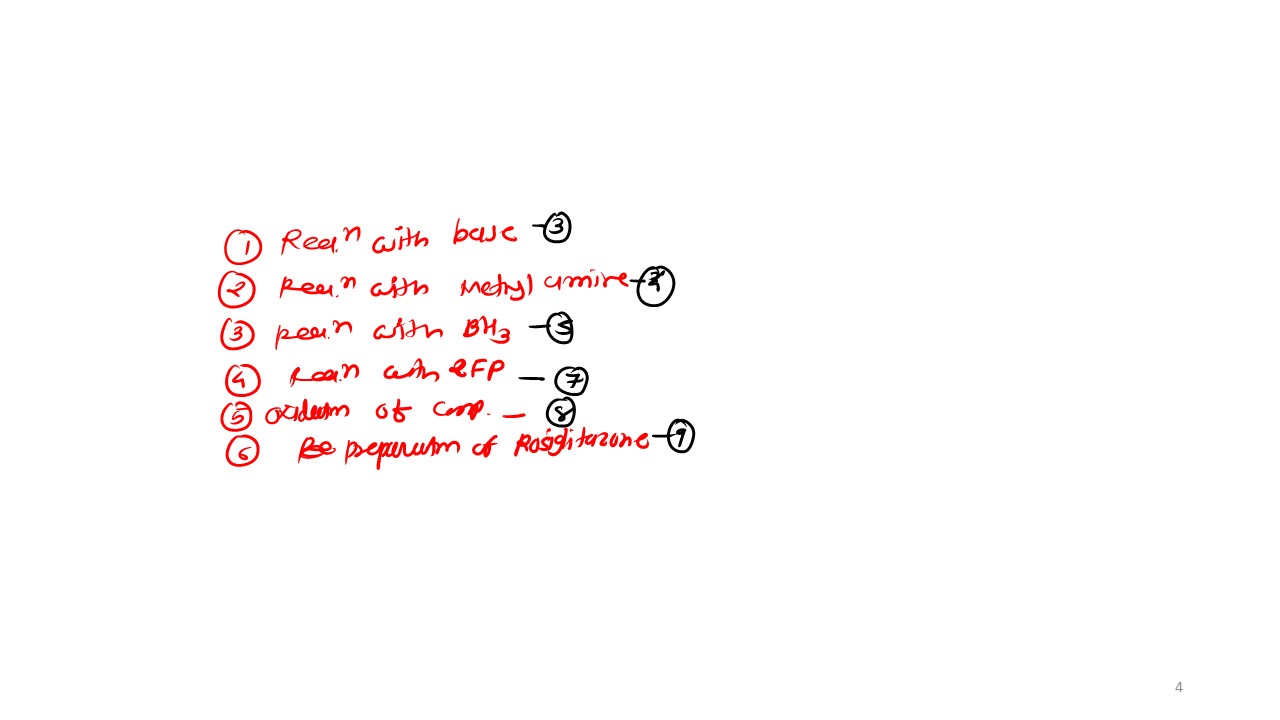 ① Reac.n with base - ③
② Reac.n with Methyl amine - ④
③ Reac.n with BH3 - ⑤
④ Reac.n with 2FP - ⑦
⑤ oxidatn of comp. - ⑧
⑥ preparatn of Rosiglitazone - ⑨
4